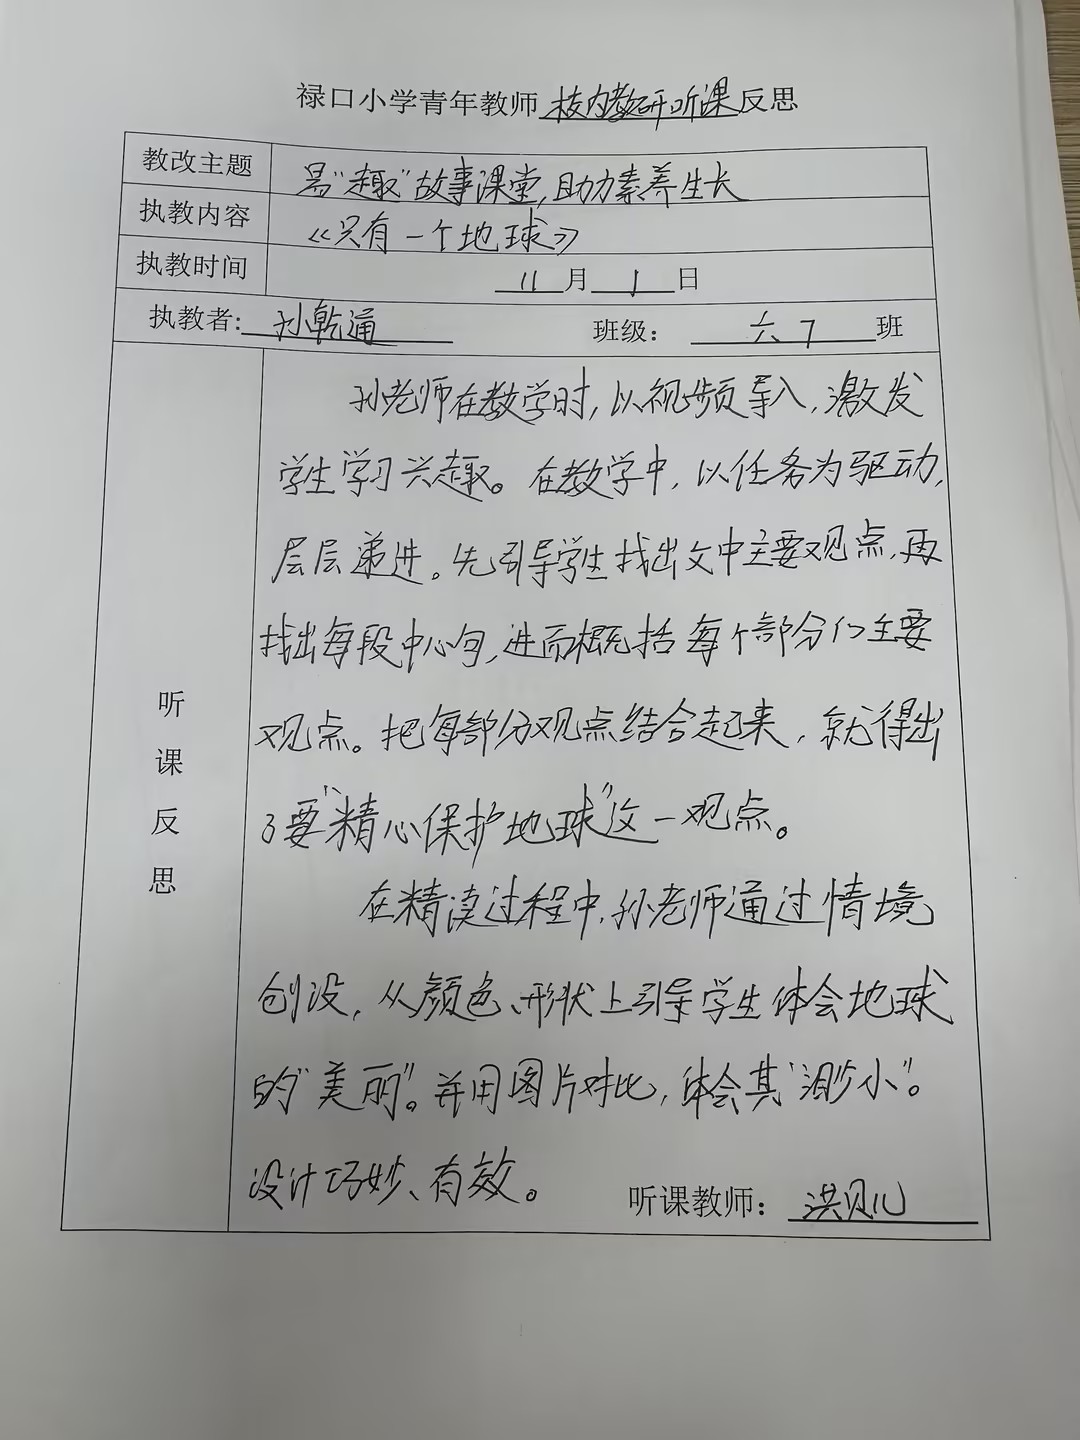 禄口小学青年教师校内教研听课反思
教改主题 易“趣”故事课堂,助力素养生长
执教内容 《只有一个地球》
执教时间 11月1日
执教者: 孙乾通 班级: 六7班
孙老师在教学时,以视频导入,激发
学生学习兴趣。在教学中,以任务为驱动,
层层递进。先引导学生找出文中主要观点,再
找出每段中心句,进而概括每个部分的主要
观点。把每部分观点结合起来,就得出
了要“精心保护地球”这一观点。
在精读过程中,孙老师通过情境
创设,从颜色、形状上引导学生体会地球
的“美丽”。并用图片对比,体会其“渺小”。
设计巧妙、有效。
听课反思
听课教师: 洪贝儿